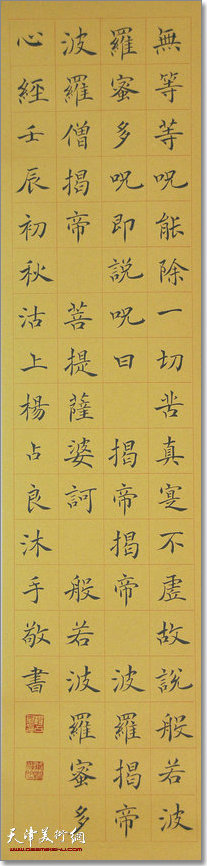 無等等呪能除一切苦真寔不虛故說般若波
羅蜜多呪即說呪曰 揭帝揭帝 波羅揭帝
波羅僧揭帝 菩提薩婆訶 般若波羅蜜多
心經壬辰初秋沽上楊占良沐手敬書
天津美術網